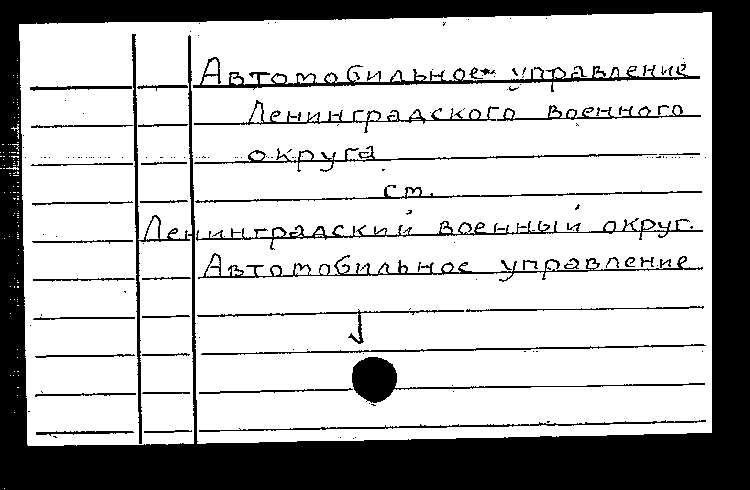 Автомобильное управление
Ленинградского военного
округа
см.
Ленинградский военный округ.
Автомобильное управление